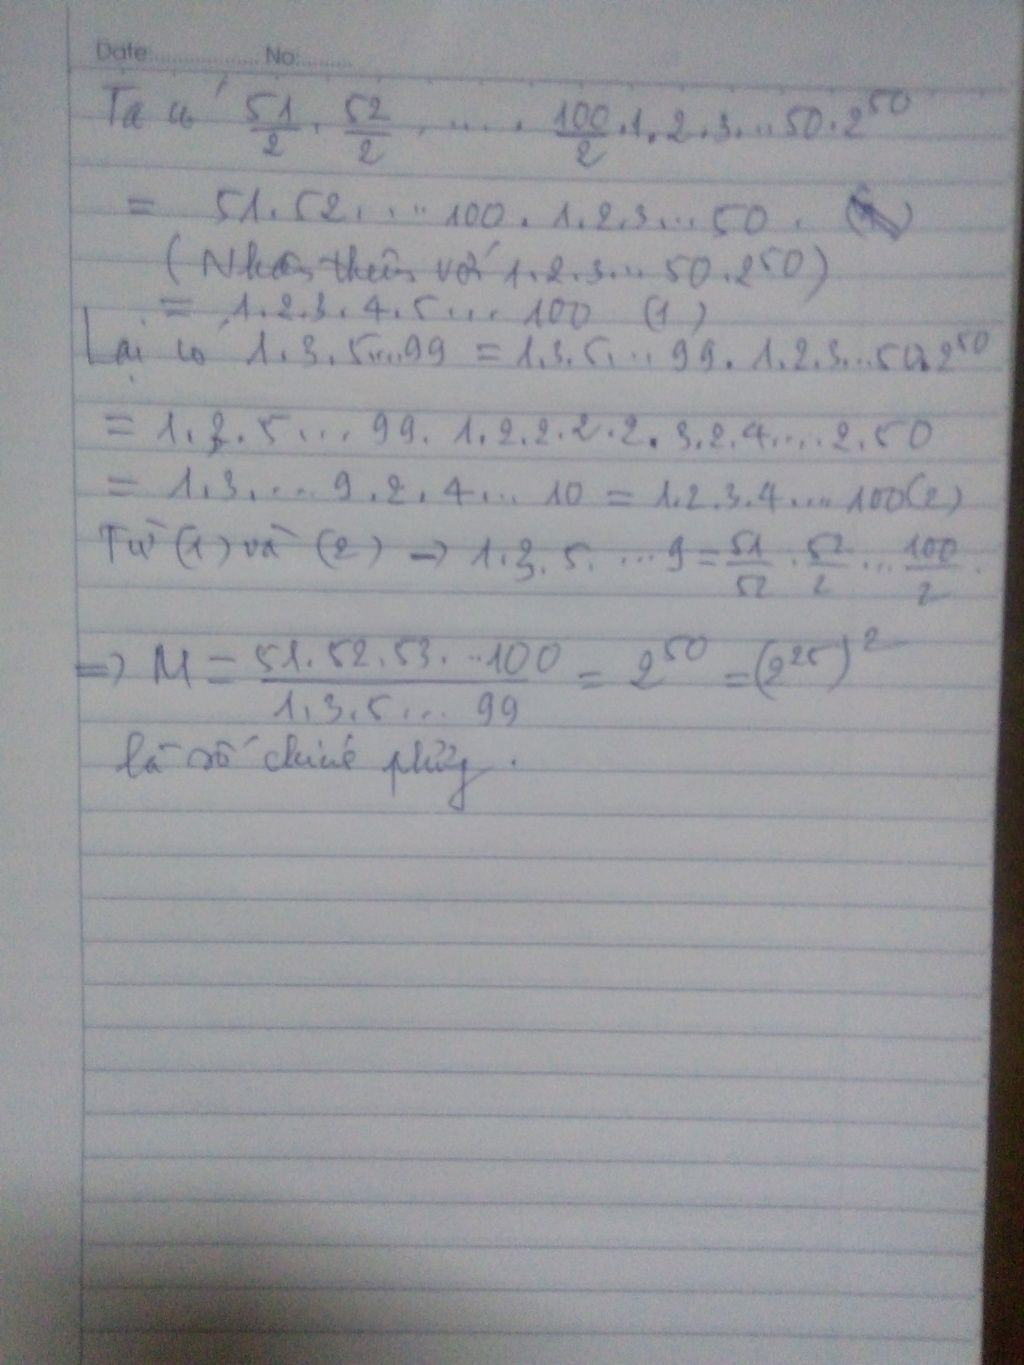 Date: No:
Ta có 51/2 . 52/2 . .... . 100/2 .1.2.3...50.2^50
= 51.52....100.1.2.3...50.
(Nhân thêm với 1.2.3...50.2^50)
= 1.2.3.4.5...100 (1)
Lại có 1.3.5...99 = 1.3.5...99.1.2.3...50.2^50
= 1.3.5...99.1.2.2.2.2.3.2.4....2.50
= 1.3....9.2.4...10 = 1.2.3.4....100(2)
Từ (1) và (2) → 1.3.5....9 = 51/52 . 52/2 ... 100/2 .
=> M = 51.52.53...100 / 1.3.5...99 = 2^50 = (2^25)^2
là số chính phương.